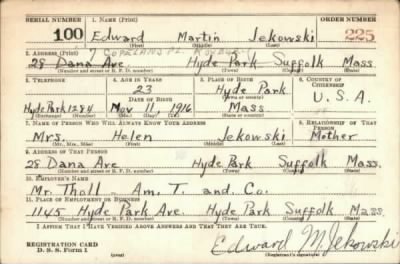 SERIAL NUMBER 1. NAME (Print) ORDER NUMBER
100 Edward Martin Jekowski 225
(First) (Middle) (Last)
7 Copeland Pl. Roxbury
2. ADDRESS (Print)
28 Dana Ave Hyde Park Suffolk Mass.
(Number and street or R. F. D. number) (Town) (County) (State)
3. TELEPHONE 4. AGE IN YEARS 5. PLACE OF BIRTH 6. COUNTRY OF CITIZENSHIP
23 Hyde Park
DATE OF BIRTH (Town or county)
Hyde Park 1284 Nov 11, 1916 Mass. U.S.A.
(Exchange) (Number) (Mo.) (Day) (Yr.) (State or country)
7. NAME OF PERSON WHO WILL ALWAYS KNOW YOUR ADDRESS 8. RELATIONSHIP OF THAT PERSON
Mrs. Helen Jekowski Mother
(Mr., Mrs., Miss) (First) (Middle) (Last)
9. ADDRESS OF THAT PERSON
28 Dana Ave Hyde Park Suffolk Mass.
(Number and street or R. F. D. number) (Town) (County) (State)
10. EMPLOYER'S NAME
Mr. Tholl Am. T. and Co.
11. PLACE OF EMPLOYMENT OR BUSINESS
1145 Hyde Park Ave. Hyde Park Suffolk Mass
(Number and street or R. F. D. number) (Town) (County) (State)
I AFFIRM THAT I HAVE VERIFIED ABOVE ANSWERS AND THAT THEY ARE TRUE.
REGISTRATION CARD
D. S. S. Form 1 (over) Edward M. Jekowski
(Registrant's signature)